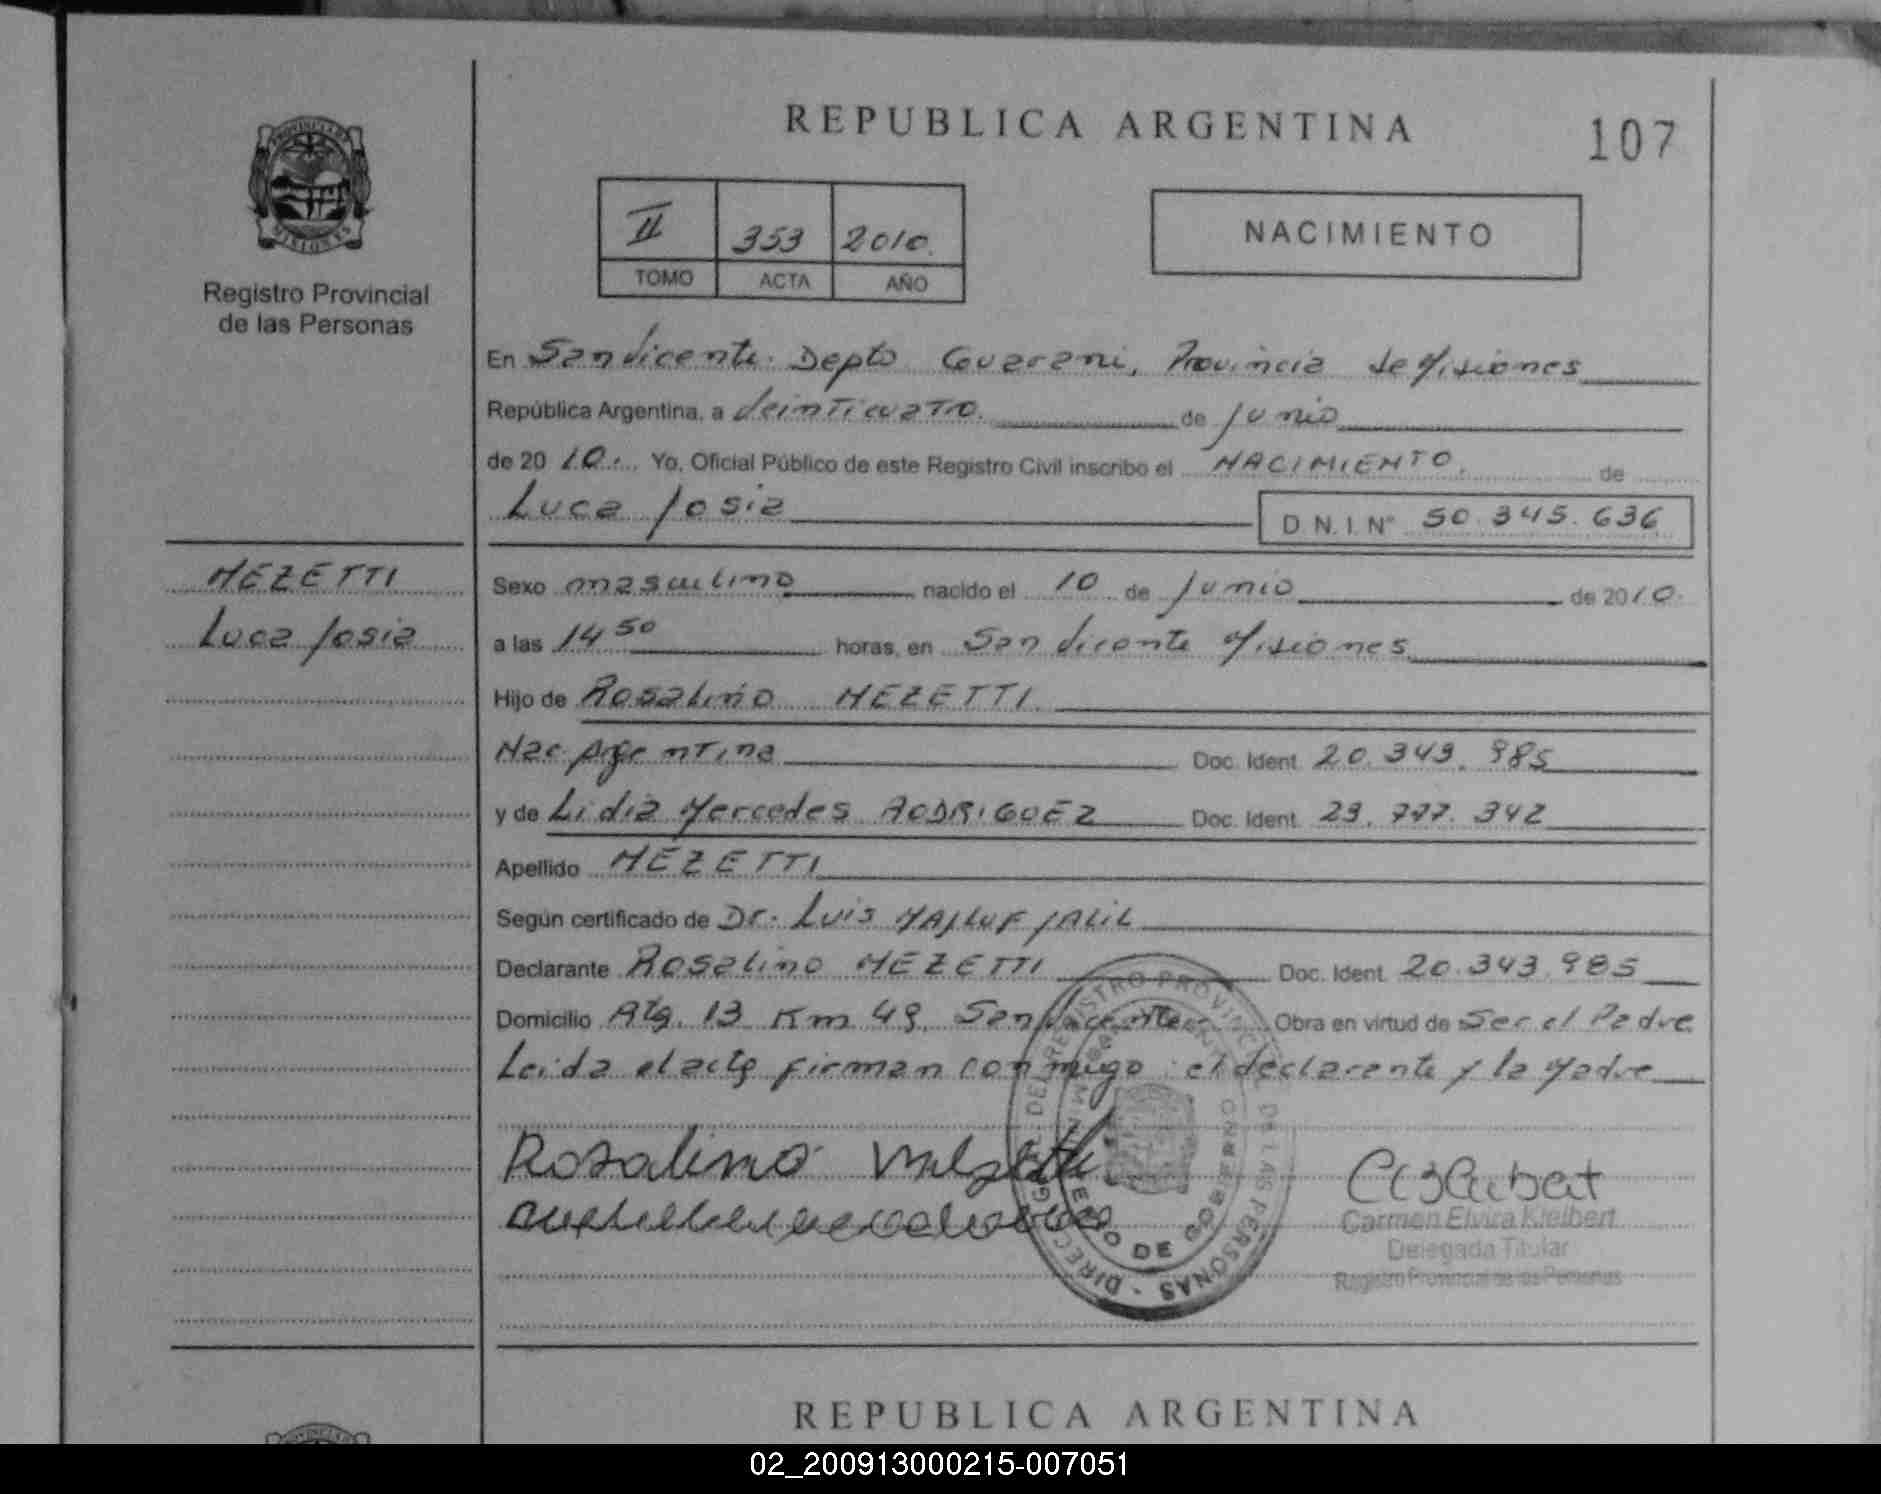 REPUBLICA ARGENTINA
107
PROVINCIA DE
MISIONES
Registro Provincial
de las Personas
II 353 2010.
TOMO ACTA AÑO
NACIMIENTO
En San Vicente. Depto Guarani, Provincia de Misiones
República Argentina, a Veinticuatro. de Junio
de 20 10. Yo, Oficial Público de este Registro Civil inscribo el NACIMIENTO. de
Luca Josia D.N.I. N° 50.345.636
MEZETTI
Luca Josia
Sexo masculino nacido el 10 de Junio de 2010.
a las 14 50 horas, en San Vicente Misiones
Hijo de Rosalino MEZETTI
Nac. Argentina Doc. Ident. 20.343.985
y de Lidia Mercedes RODRIGUEZ Doc. Ident. 29.777.342
Apellido MEZETTI
Según certificado de Dr. Luis MAJLUF JALIL
Declarante Rosalino MEZETTI Doc. Ident. 20.343.985
Domicilio Rta. 13 Km 49. San Vicente. Obra en virtud de Ser el Padre
Leida el acta firman conmigo: el declarante y la Madre
Rosalino
DIRECC. GRAL. DEL REGISTRO PROVINCIAL DE LAS PERSONAS
MINISTERIO DE GOBIERNO
Carmen Elvira Kleibert
Delegada Titular
Registro Provincial de las Personas
REPUBLICA ARGENTINA
02_200913000215-007051